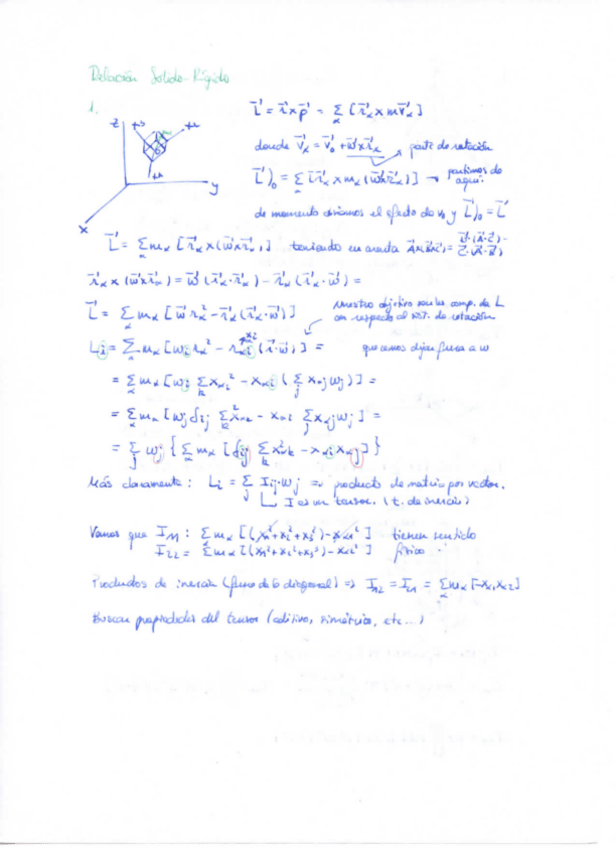 Relación Sólido-Rígido
1.
z
y
x
L⃗ = r⃗ × p⃗ = Σ_α [r⃗_α × m v⃗_α]
donde v⃗_α = v⃗_0 + ω⃗ × r⃗_α → parte de rotación
L⃗)_0 = Σ_α [r⃗_α × m_α (ω⃗ × r⃗_α)] → partimos de aquí.
de momento obviamos el efecto de v_0 y L⃗)_0 = L⃗
L⃗ = Σ_α m_α [r⃗_α × (ω⃗ × r⃗_α)] teniendo en cuenta A⃗×(B⃗×C⃗) = B⃗·(A⃗·C⃗) - C⃗·(A⃗·B⃗)
r⃗_α × (ω⃗ × r⃗_α) = ω⃗ (r⃗_α · r⃗_α) - r⃗_α (r⃗_α · ω⃗) =
L⃗ = Σ_α m_α [ω⃗ r_α² - r⃗_α (r⃗_α · ω⃗)] nuestro objetivo son las comp. de L
con respecto al sist. de rotación.
L_i = Σ_α m_α [ω_i r_α² - x_αi (r⃗ · ω⃗)] = queremos dejar fuera a ω
= Σ_α m_α [ω_i Σ_k x_αk² - x_αi (Σ_j x_αj ω_j)] =
= Σ_α m_α [ω_j δ_ij Σ_k x²_αk - x_αi Σ_j x_αj ω_j] =
= Σ_j ω_j { Σ_α m_α [δ_ij Σ_k x²_αk - x_αi x_αj] }
Más claramente: L_i = Σ_j I_ij · ω_j ⇒ producto de matriz por vector.
I es un tensor. (t. de inercia)
Vemos que I_11: Σ_α m_α [(x_1² + x_2² + x_3²) - x_α1²] tienen sentido
I_22 = Σ m_α [(x_1² + x_2² + x_3²) - x_α2²] físico
Productos de inercia (fuera de la diagonal) ⇒ I_12 = I_21 = Σ_α m_α [-x_α1 x_α2]
Buscar propiedades del tensor (aditivo, simétrico, etc...)